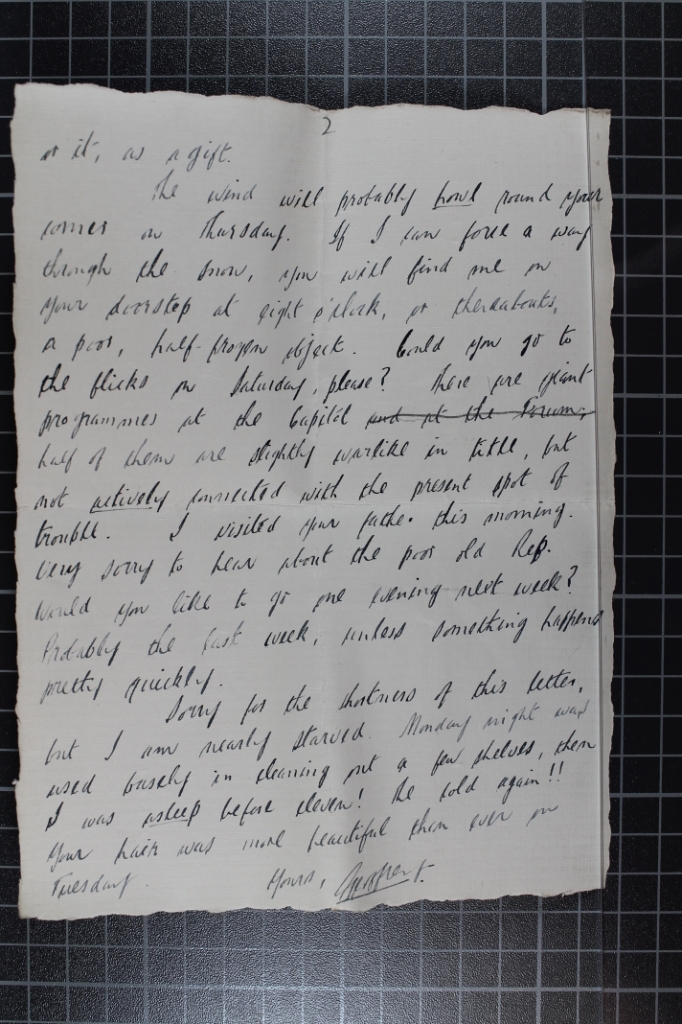 2
or it, as a gift.
The wind will probably howl round your
corner on Thursday. If I can force a way
through the snow, you will find me on
your doorstep at eight o'clock, or thereabouts,
a poor, half-frozen object. Could you go to
the flicks on Saturday, please? There are giant
programmes at the Capitol and at the Forum;
half of them are slightly warlike in title, but
not actively connected with the present spot of
trouble. I visited your father this morning.
Very sorry to hear about the poor old Rep.
Would you like to go one evening next week?
Probably the last week, unless something happens
pretty quickly.
Sorry for the shortness of this letter,
but I am nearly starved. Monday night was
used basely in cleaning out a few shelves, then
I was asleep before eleven! The cold again!!
Your hair was more beautiful than ever on
Tuesday.
Yours, Geoffrey.